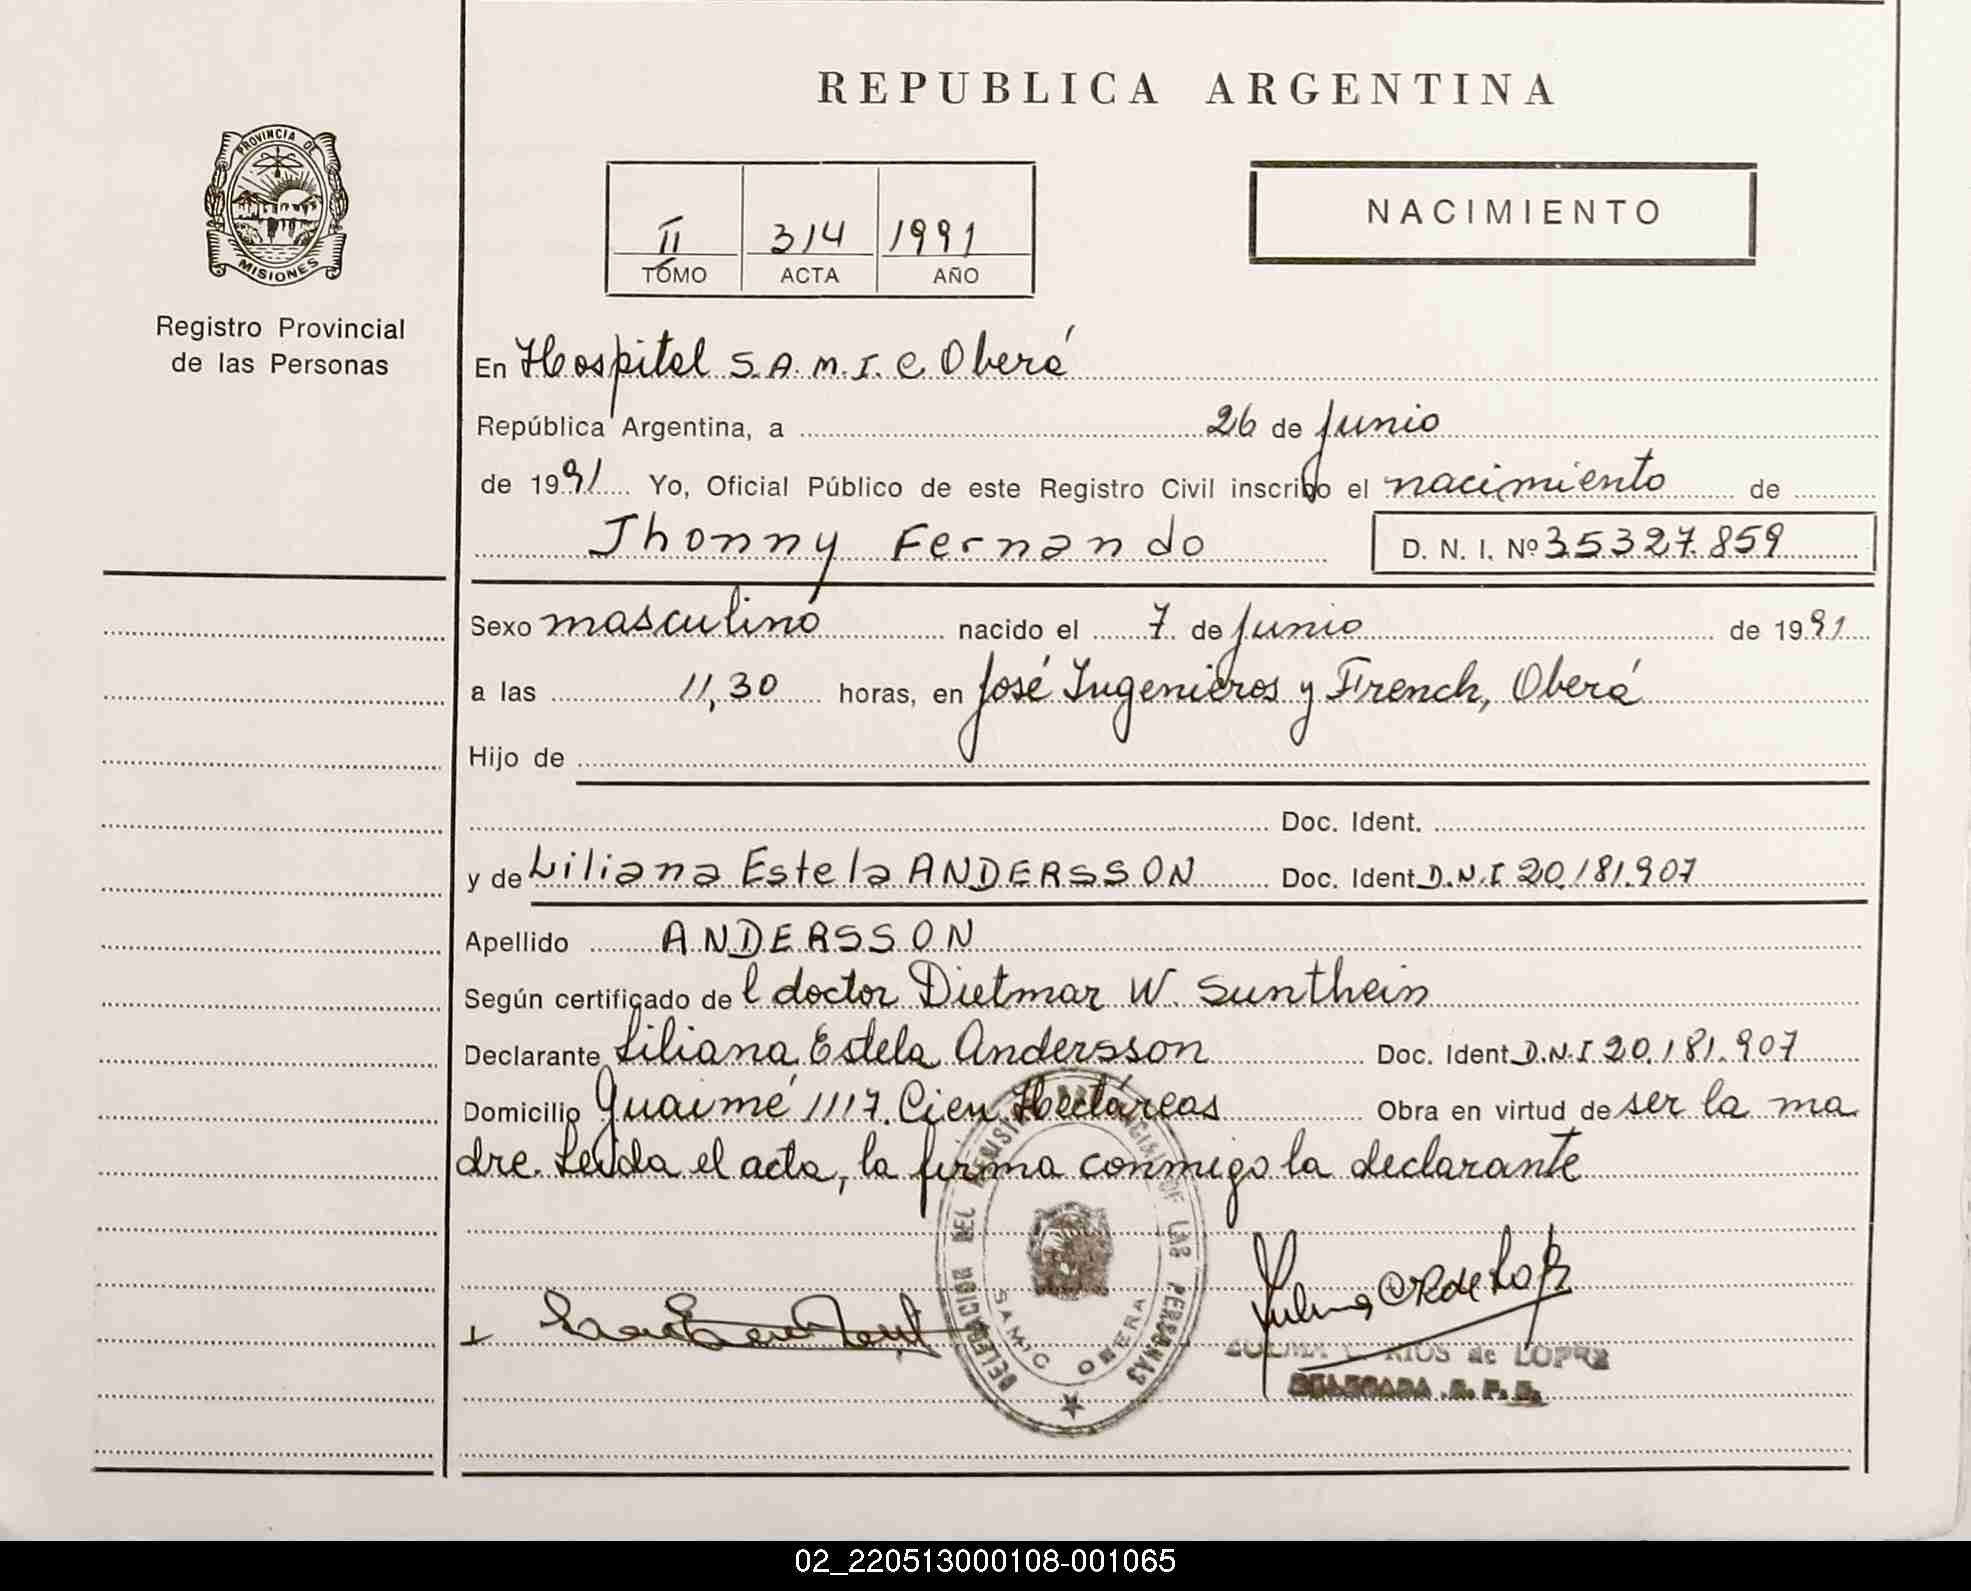 REPUBLICA ARGENTINA
PROVINCIA DE
MISIONES
Registro Provincial
de las Personas
II 314 1991
TOMO ACTA AÑO
NACIMIENTO
En Hospital S.A.M.I.C. Oberá
República Argentina, a 26 de Junio
de 1991 Yo, Oficial Público de este Registro Civil inscribo el nacimiento de
Jhonny Fernando D. N. I. Nº 35327.859
Sexo masculino nacido el 7 de Junio de 1991
a las 11,30 horas, en José Ingenieros y French, Oberá
Hijo de
Doc. Ident.
y de Liliana Estela ANDERSSON Doc. Ident D.N.I 20.181.907
Apellido ANDERSSON
Según certificado de l doctor Dietmar W. Sunthein
Declarante Liliana Estela Andersson Doc. Ident D.N.I 20.181.907
Domicilio Guaimé 1117. Cien Hectáreas Obra en virtud de ser la ma
dre. Leída el acta, la firma conmigo la declarante
DELEGACION DEL REGISTRO PROVINCIAL DE LAS PERSONAS
SAMIC OBERA
RIOS de LOPEZ
DELEGADA R. P. P.
02_220513000108-001065